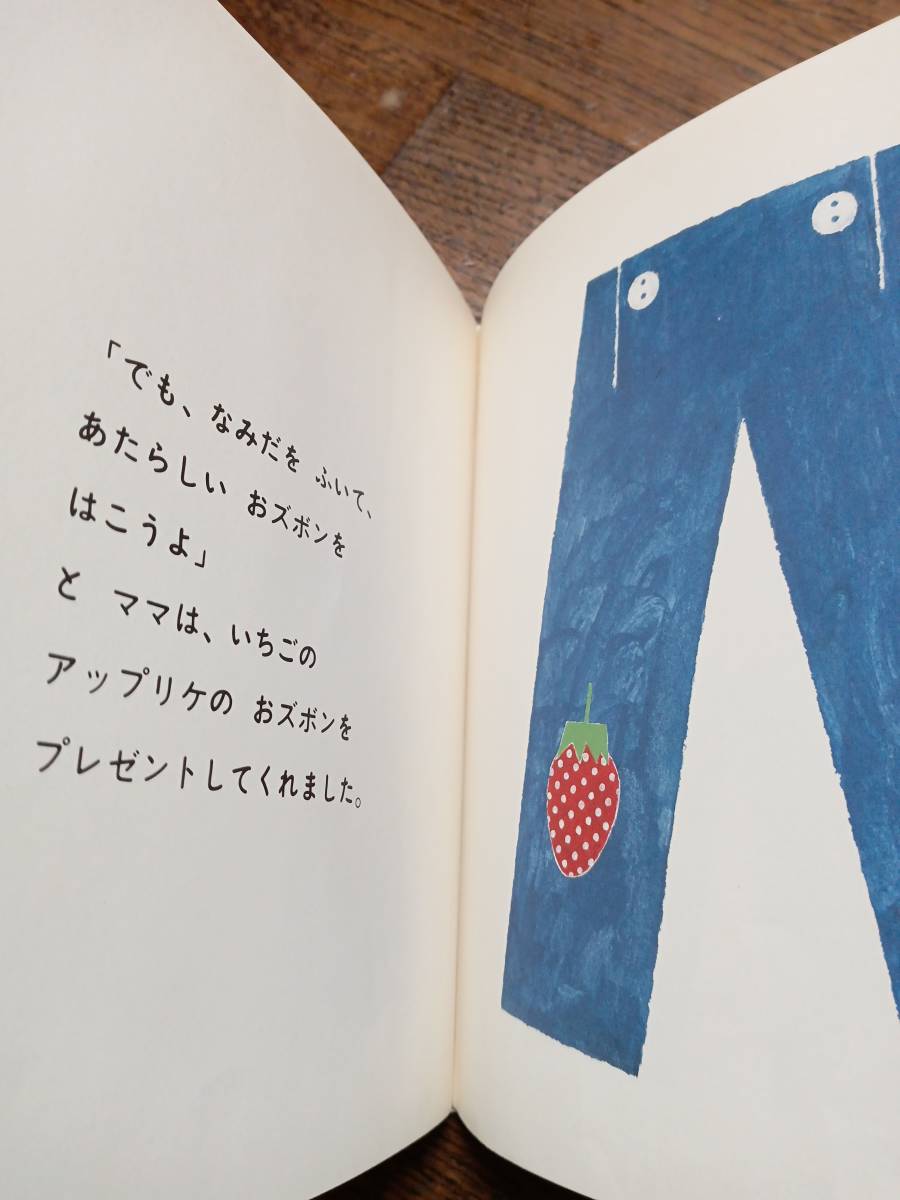 「でも、なみだを ふいて、
あたらしい おズボンを
はこうよ」
と ママは、いちごの
アップリケの おズボンを
プレゼントしてくれました。